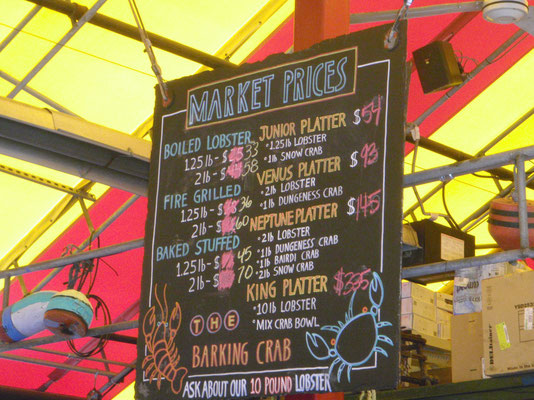 MARKET PRICES
BOILED LOBSTER
1.25lb - $ 33
2lb - $ 58
FIRE GRILLED
1.25lb - $ 36
2lb - $ 60
BAKED STUFFED
1.25lb - $ 45
2lb - $ 70
JUNIOR PLATTER
*1.25lb LOBSTER
*1lb SNOW CRAB
VENUS PLATTER $93
*2lb LOBSTER
*1lb DUNGENESS CRAB
NEPTUNE PLATTER $145
*2lb LOBSTER
*1lb DUNGENESS CRAB
*1lb BAIRDI CRAB
*2lb SNOW CRAB
KING PLATTER
*10lb LOBSTER
*MIX CRAB BOWL
THE
BARKING CRAB
ASK ABOUT OUR 10 POUND LOBSTER